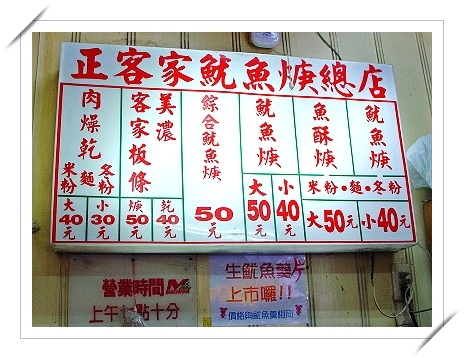 正客家魷魚焿總店
魷魚焿
魚酥焿
米粉•麵•冬粉
大50元
小40元
魷魚焿
大50元
小40元
綜合魷魚焿
50元
美濃
客家板條
焿50元
乾40元
肉燥乾
米粉 麵 冬粉
大40元
小30元
營業時間
上午 點十分
生魷魚羹片
上市囉!!
價格與魷魚羹相同